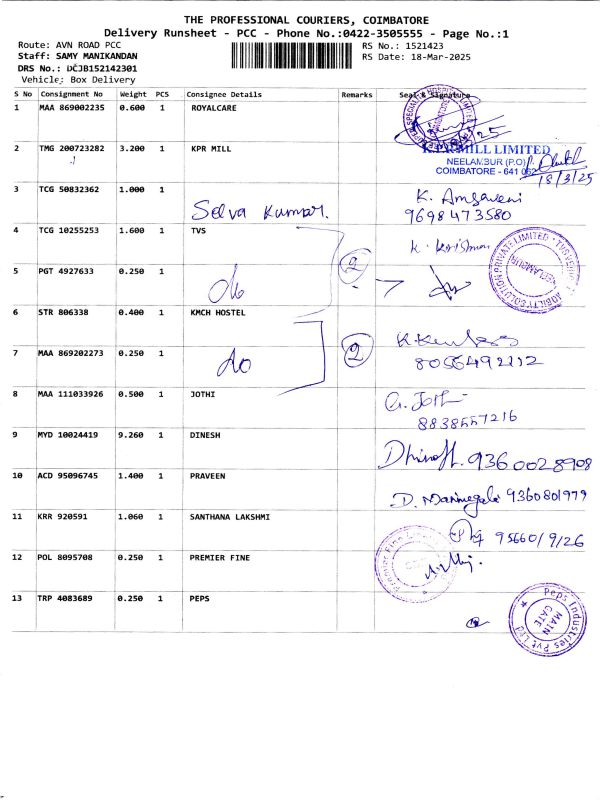 THE PROFESSIONAL COURIERS, COIMBATORE
Delivery Runsheet - PCC - Phone No.:0422-3505555 - Page No.:1
Route: AVN ROAD PCC
RS No.: 1521423
Staff: SAMY MANIKANDAN
RS Date: 18-Mar-2025
DRS No.: DCJB152142301
Vehicle: Box Delivery
S No Consignment No Weight PCS Consignee Details Remarks Seal & Signature
1 MAA 869002235 0.600 1 ROYALCARE
2 TMG 200723282 3.200 1 KPR MILL
K.P.R MILL LIMITED
NEELAMBUR (P.O)
COIMBATORE - 641 062
18/3/25
3 TCG 50832362 1.000 1
Selva Kumar.
9698473580
4 TCG 10255253 1.600 1 TVS
5 PGT 4927633 0.250 1
2
6 STR 806338 0.400 1 KMCH HOSTEL
7 MAA 869202273 0.250 1
do
2
8056492112
8 MAA 111033926 0.500 1 JOTHI
G. Joth
8838557216
9 MYD 10024419 9.260 1 DINESH
9360028908
10 ACD 95096745 1.400 1 PRAVEEN
9360801979
11 KRR 920591 1.060 1 SANTHANA LAKSHMI
12 POL 8095708 0.250 1 PREMIER FINE
13 TRP 4083689 0.250 1 PEPS
Peps Industries Pvt Ltd
MAIN
GATE